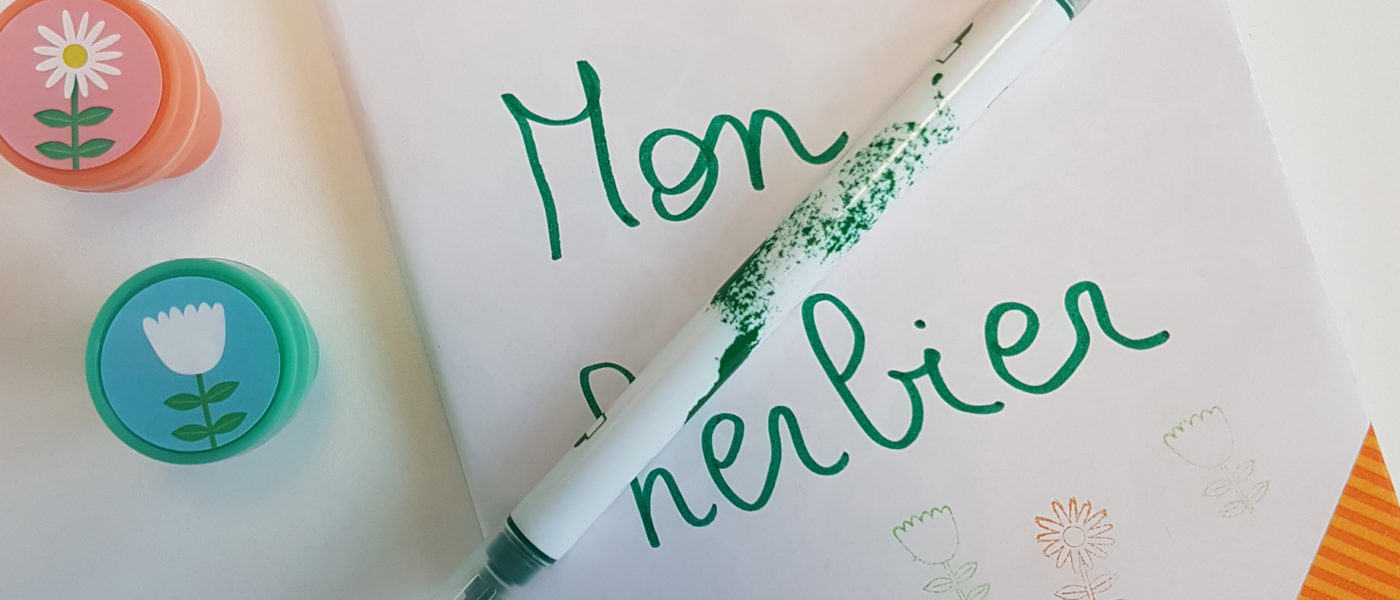 Mon
herbier